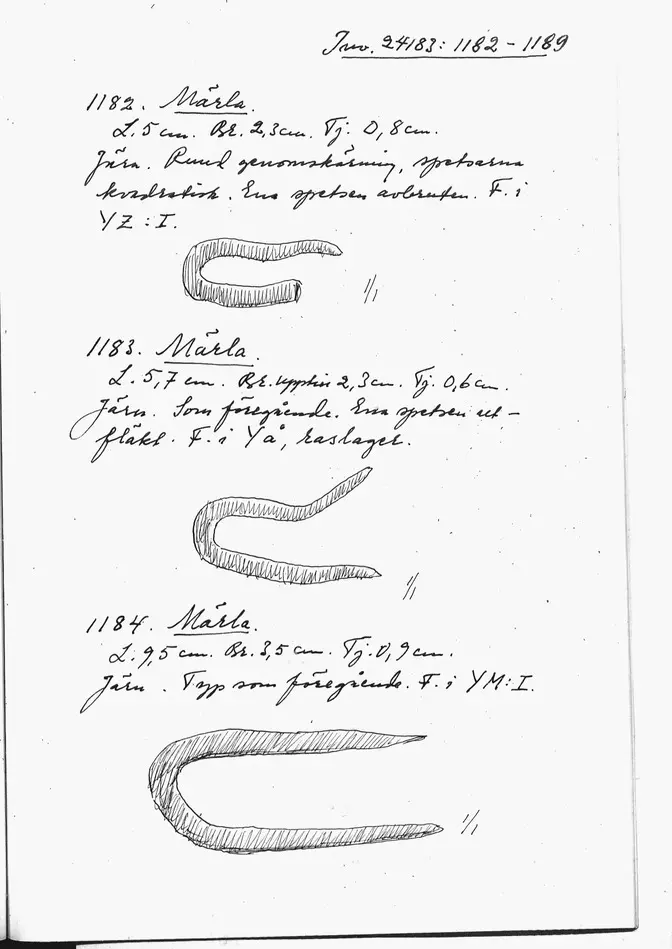 Inv. 24183: 1182 - 1189
1182. Märla.
L. 5 cm. Br. 2,3 cm. Tj. 0,8 cm.
Järn. Rund genomskärning, spetsarna
kvadratisk. Ena spetsen avbruten. F. i
YZ : I.
1/1
1183. Märla.
L. 5,7 cm. Br. upptill 2,3 cm. Tj. 0,6 cm.
Järn. Som föregående. Ena spetsen ut-
fläkt. F. i YÅ, raslager.
1/1
1184. Märla.
L. 9,5 cm. Br. 3,5 cm. Tj. 0,9 cm.
Järn. Typ som föregående. F. i YM: I.
1/1